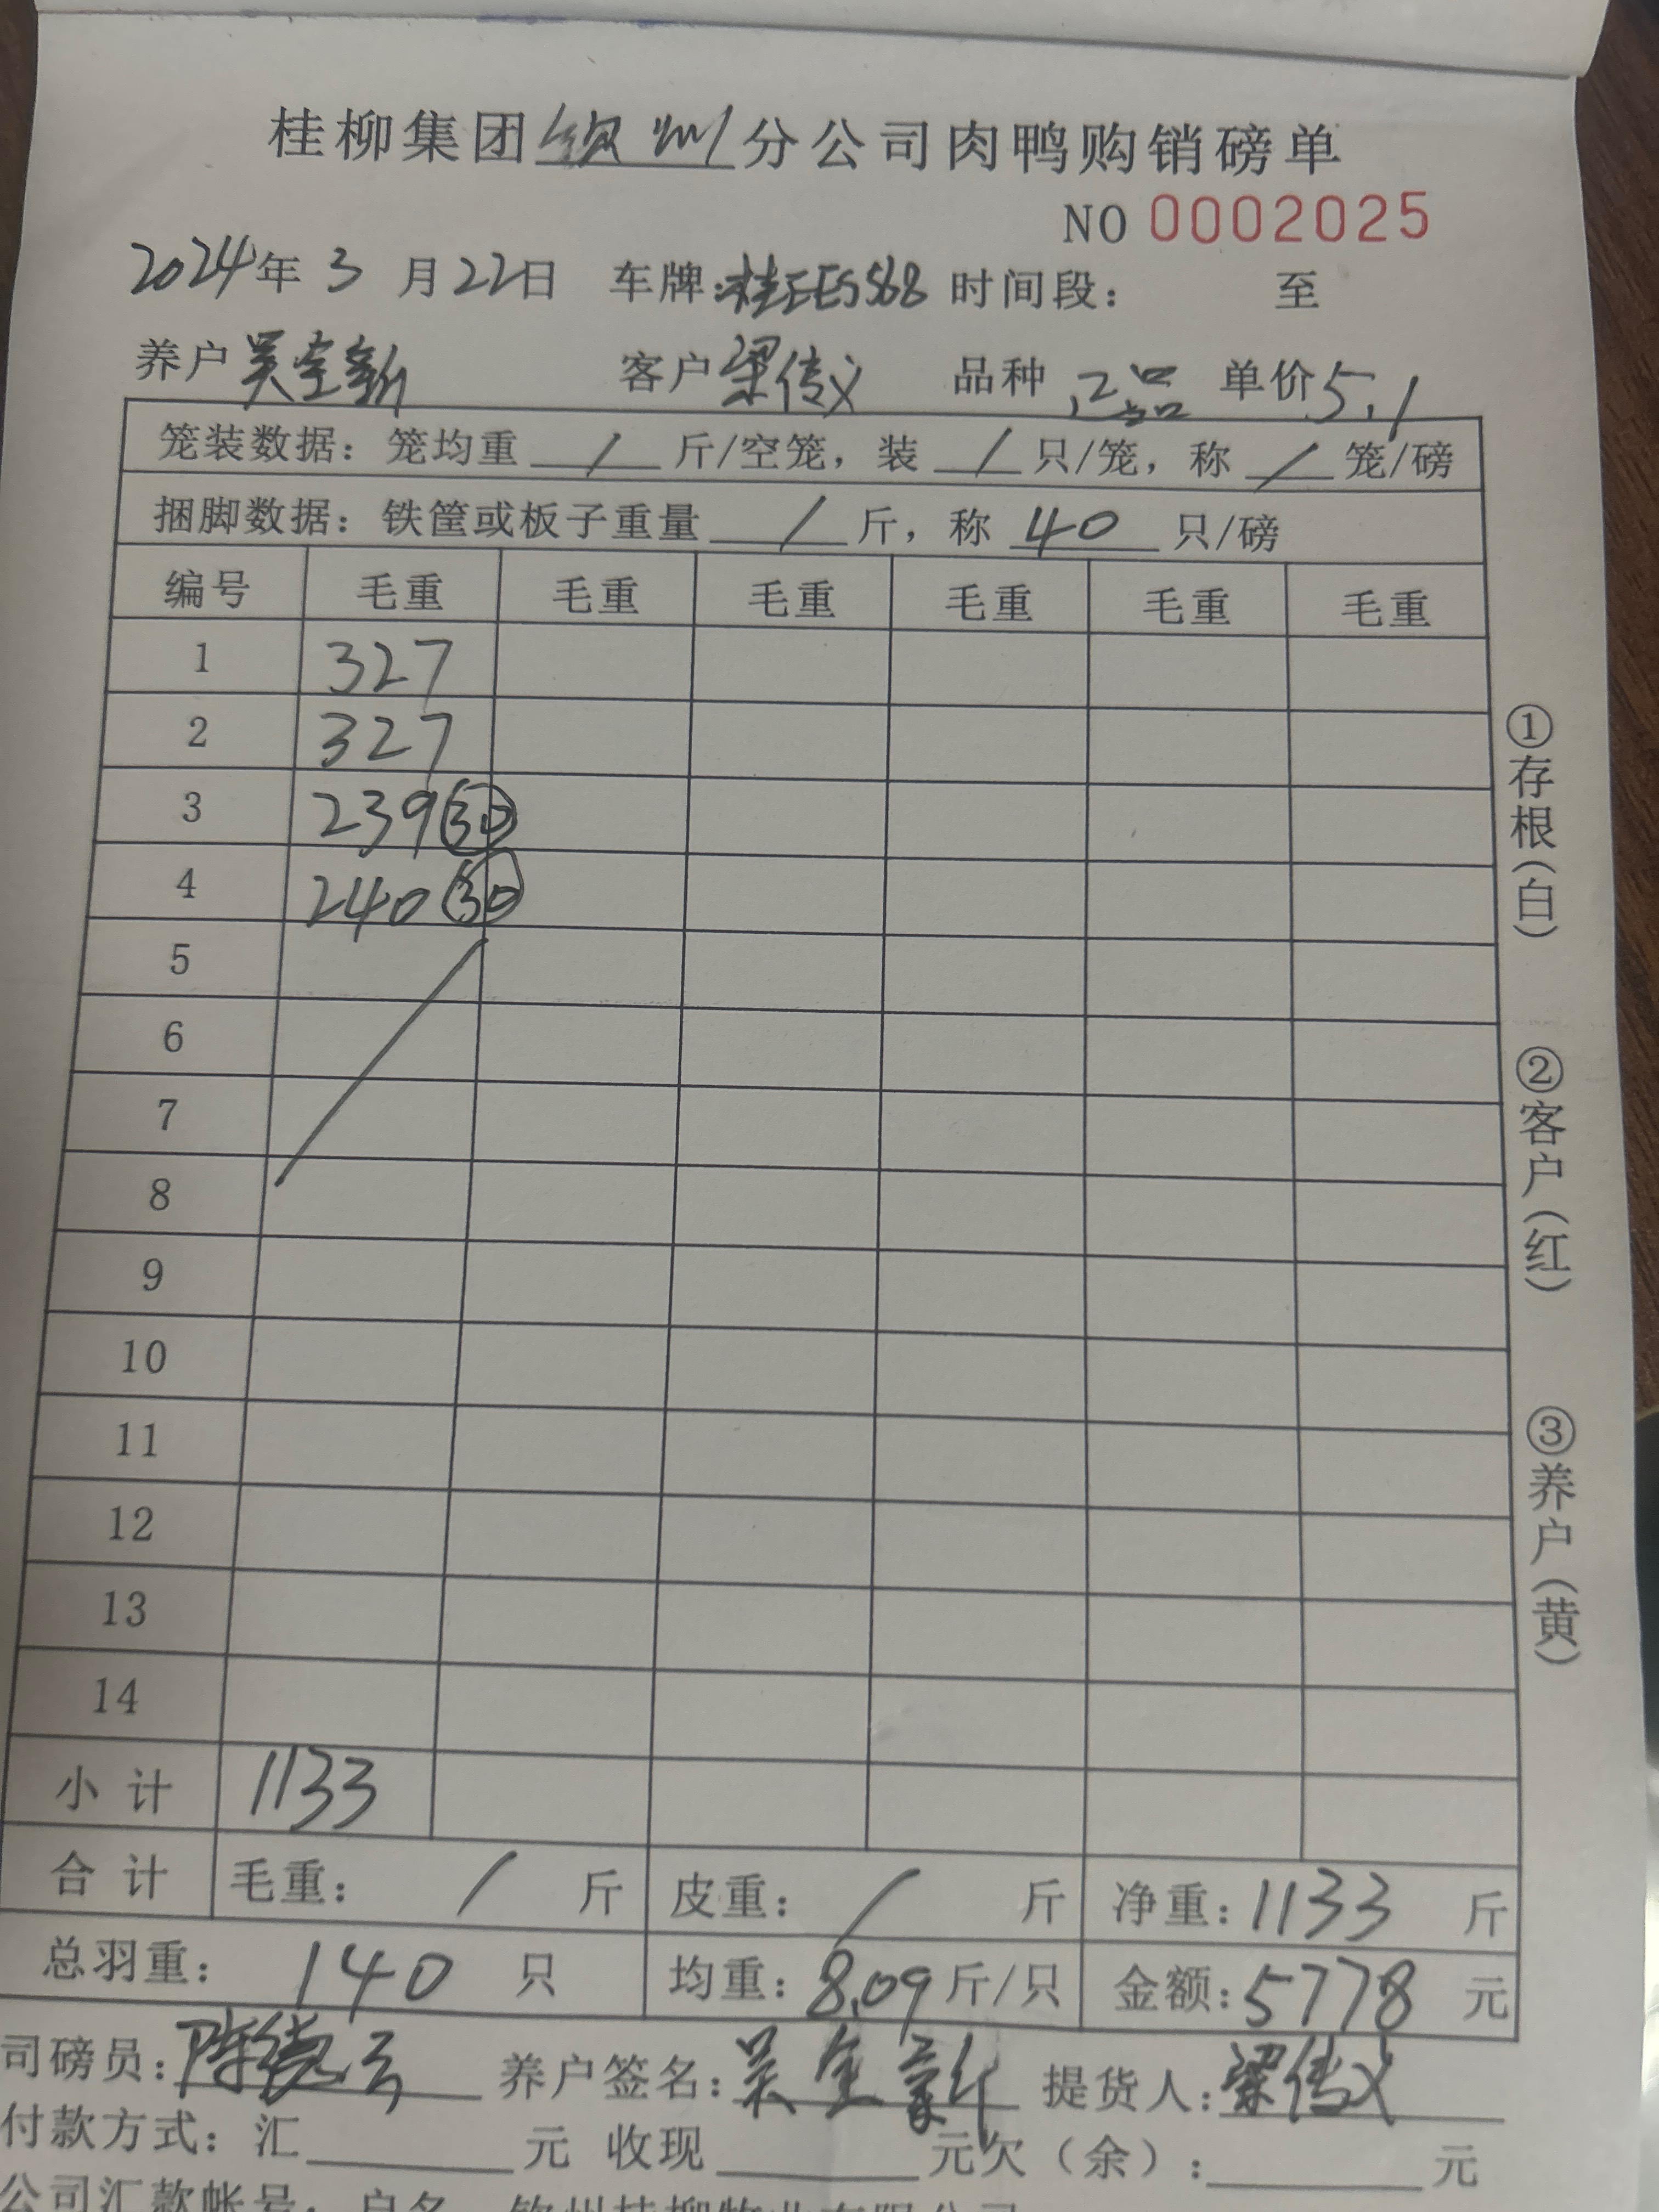 桂柳集团钦州分公司肉鸭购销磅单
NO 0002025
2024年 3 月22日 车牌:桂EE5568 时间段: 至
养户 吴全新 客户 梁传义 品种 正品 单价 5.1
笼装数据: 笼均重 / 斤/空笼, 装 / 只/笼, 称 / 笼/磅
捆脚数据: 铁筐或板子重量 / 斤, 称 40 只/磅
编号 毛重 毛重 毛重 毛重 毛重 毛重
1 327
2 327
3 239 30
4 240 30
5
6
7
8
9
10
11
12
13
14
小计 1133
合计 毛重: / 斤 皮重: / 斤 净重: 1133 斤
总羽重: 140 只 均重: 8.09 斤/只 金额: 5778 元
司磅员: 陈德云 养户签名: 吴全新 提货人: 梁传义
付款方式: 汇 元 收现 元欠(余): 元
公司汇款帐号: 户名 钦州桂柳牧业有限公司
①存根(白)
②客户(红)
③养户(黄)